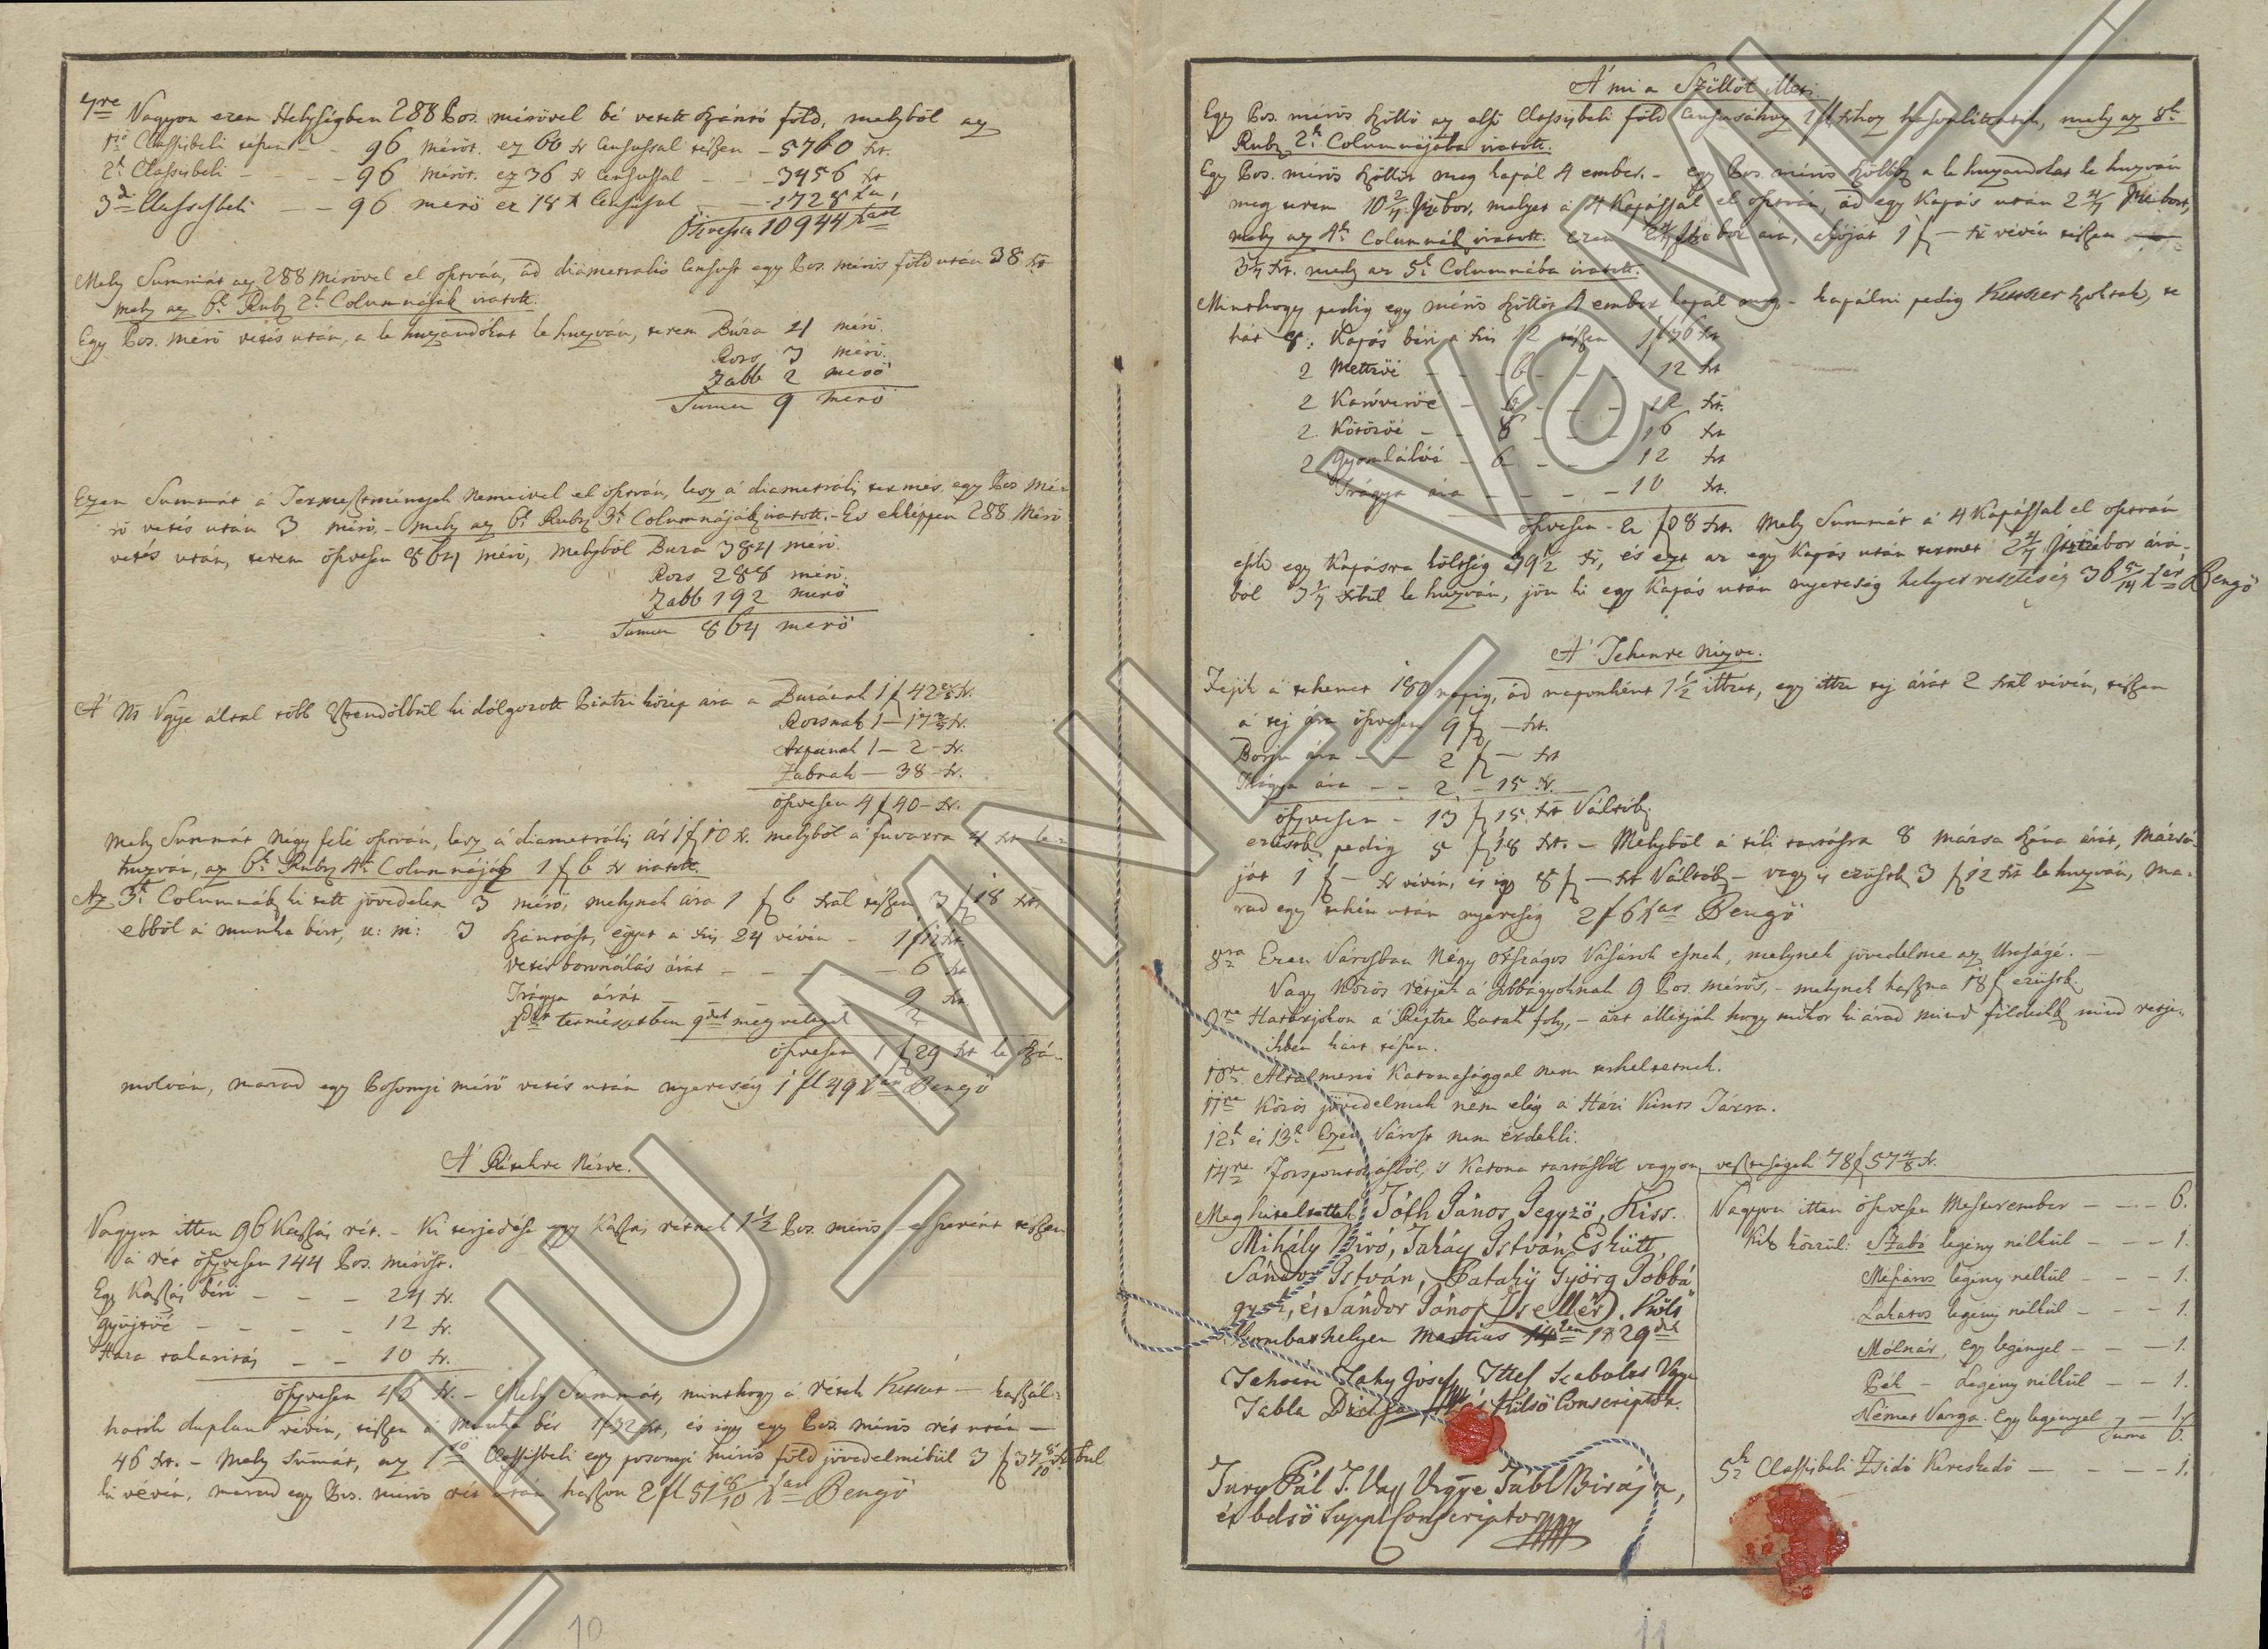 7re Vagyon ezen Helységben 288 Pos. mérővel bé vetett szántó föld, melyből az
1ső Classisbeli tészen – 96 mérőt. ez 60 xr Censussal tészen – 5760 xr.
2k Classisbeli – – – 96 mérőt. ez 36 xr Censussal – – 3456 xr
3dik Classisbeli – – 96 mérő ez 18 x Censussal – – 1728 xra,
Öszvessen 10944 xart
Mely Summát az 288 mérővel el osztván, ád diametralis Censust egy Pos. mérős föld után 38 xrt
mely az 6k Rubr. 2k Columnáják iratott.
Egy Pos. mérő vetés után, a le huzandókat le huzván, terem Búza 4 mérő.
Rozs 3 mérő.
Zabb 2 mérő
Summa 9 mérő
Ezen Summát a Termesztmények nemeivel el osztván, lesz á diametrális termés egy Pos. Mé-
rő vetés után 3 mérő, – mely az 6k Rubr. 3k Columnáják iratott. – És ekképpen 288 Mérő
vetés után, terem öszvessen 864 mérő, melyből Buza 384 mérő.
Rozs 288 mérő.
Zabb 192 mérő
Summa 864 mérő
A' Ns Vgye által több Esztendőkbül ki dolgozott Piatzi közép ára a Buzának 1 f 42 xr.
Rozsnak 1 – 17 xr.
Árpának 1 – 2 – xr.
Zabnak – 38 – xr.
öszvessen 4 f 40 – xr.
Mely Summát négy felé osztván, lesz, á diametrális ár 1 f 10 x. melyből a fuvarra 4 xrt le-
huzván, az 6k Rubr. 4k Columnáják 1 f 6 xr iratott.
Az 3k Columnák ki tett jövedelem 3 mérő, melynek ára 1 f 6 xrál tészen 3 f 18 xrt.
ebből á munka bért, u: m: 3 szántást, egyet a xris 24 vévén – 1 f 12 xr.
vetés boronálás árát – – – 6 xr
Trágya árát – – – – 9 xr
természetben 9det meg
öszvessen 1 f 29 xrt le szá-
molván, marad egy Posonyi mérő vetés után nyereség 1 fl 49 xar Pengő
A' Rétekre Nézve.
Vagyon itten 96 Kaszás rét. – Ki terjedése egy Kaszás rétnek 1 1/2 Pos. mérős – e szerént tészen
a rét öszvessen 144 Pos. mérőst.
Egy Kaszás béri – – – 24 xr.
gyűjtőé – – – – 12 xr.
Haza takarítás – – 10 xr.
öszvessen 46 xr. – Mely Summát, minthogy á rétek Kétszer – kaszál-
tatik duplán vévén, tészen á munka bér 1 f 32 xr, és igy egy Pos. mérős rét után –
46 xr. – Mely Súmát, az 1ső Classisbeli egy posonyi mérős föld jövedelméből 3 f 37 8/10 xrbul
ki vévén, marad egy Pos. mérős rét után haszon 2 fl 51 8/10 xar Pengő
10
A' mi a Szőllőt illeti.
Egy Pos. mérős szőllő az első Classisbeli föld Censusához 1 fl xrhoz hasonlittatik, mely az 8k
Rubr. 2k Columnájába iratott.
Egy Pos. mérős szőllőt meg kapál 4 ember. – egy Pos. mérős szőllő a le huzandókat le huzván
meg terem 10 2/7 bor, melyet á 4 Kapással el osztván, ád egy Kapás után 2 4/7 bort,
mely az 4k Columnák iratott. ezen 2 4/7 bor ára, 1 f – xr vévén tészen
mely az 5k Columnába iratott.
Minthogy pedig egy mérős szőllőt 4 ember kapál meg, – kapálni pedig Kétszer szoktak, te
hát 8. Kapás béri a xris 12 tészen 1 f 36 xrt
2 Mettzőé – – 6 – – – 12 xrt
2 Karóverőé – 6 – – – 12 xrt.
2 Kötözőé – – 8 – – – 16 xrt
2 gyomlálóé – 6 – – – 12 xrt
Trágya ára – – – – 10 xrt.
öszvessen – 2 f 38 xrt. Mely Summát á 4 Kapással el osztván
esik egy Kapásra költség 39 1/2 xr, és ezt az egy Kapás után termett 2 4/7 bor árá-
ból le huzván, jön ki egy Kapás után nyereség helyett veszteség 36 5/14 xar Pengő
A' Tehenre nézve.
Fejik á tehenet 180 napig, ád naponként 1 1/2 ittzét, egy ittze tej árát 2 xrál vévén, tészen
á tej ára öszvessen 9 f – xrt.
Borju ára – – 2 f – xrt
Trágya ára – – 2. – 15 xr.
öszvessen – 13 f 15. xrt Váltób.
ezüstb. pedig 5 f 18 xrt. – Melyből á téli tartásra 8 mázsa széna árát, mázsá-
ját 1 f – xr vévén, és igy 8 f – xrt Váltób. – vagy is ezüstb. 3 f 12 xrt le huzván, ma-
rad egy tehén után nyereség 2 f 6 xar Pengő
8ra Ezen Városban Négy Országos Vásárok esnek, melynek jövedelme az Uraságé. –
Vagy Közös rétjek á Jobbágyoknak 9 Pos. mérős, – melynek haszna 18 f ezüstb.
9re Határjokon á Répcze Patak foly, – azt állitják hogy mikor ki árad mind földeikb. mind rétje-
ikben kárt tészen.
10re Általmenő Katonasággal nem terheltetnek.
11re Közös jövedelmek nem elég á Házi Kints Tárra.
12k és 13k Ezen Várost nem érdekli.
14re Forspontozásból, s Katona tartásból vagyon veszteségek 78 f 57 4/8 xr.
Meg hiteltettek, Tóth János Jegyző, Kiss
Mihály Biró, Takács István, Eskütt,
Sándor István, Patakÿ Györg Jobbá
gyok, és Sándor János Zsellér). Költ
Szombathelyen Martius 14ken 1829det
Tábla Birája és Külső Conscriptor.
Jury Pál T. Vas Vgye Tábl Birája,
és belső Suppl Conscriptor
Vagyon itten öszvessen Mesterember – – – 6.
Kik közzül: Szabó legény nélkül – – – 1.
Mészáros legény nélkül – – – 1.
Lakatos legény nélkül – – – 1.
Mólnár, egy legényel – – – 1.
Pék – Legény nélkül – – 1.
Német Varga. Egy legényel – – 1.
Suma 6.
5k Classisbeli Zsidó Kereskedő – – – – 1.
11
HU_MNL_VaML_I